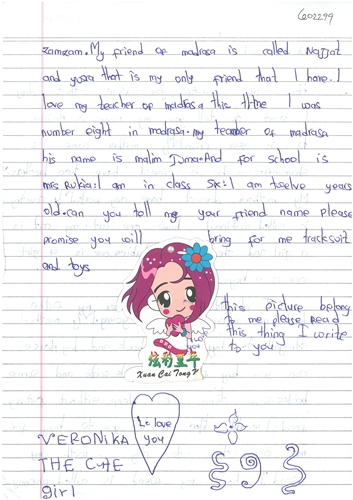 602299
zamzam. My friend of madrasa is called Najjat
and yusra that is my only friend that I have. I
love my teacher of madrasa this time I was
number eight in madrasa. my teacher of madrasa
his name is malim Juma. And for school is
mrs Rukia: I am in class six: I am twelve years
old. can you tell me your friend name please
promise you will bring for me tracksuit
and toys
this picture belong
to me please Read
this thing I write
to you
炫彩童年
Xuan Cai Tong
I love
you
VERONIKA
THE CUTE
girl